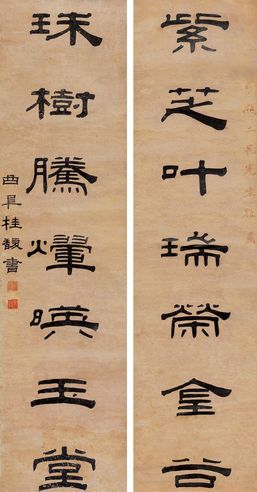 紫芝叶瑞榮金谷
珠樹騰煇暎玉堂
曲阜桂馥書